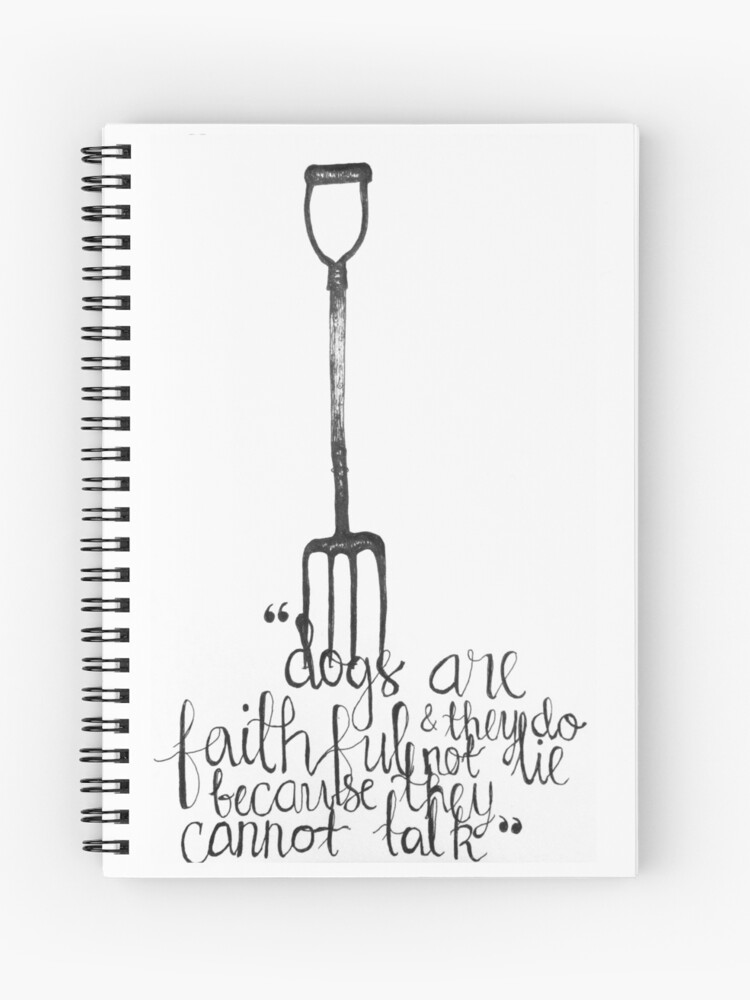 “dogs are
faithful & they do
not lie
because they
cannot talk”